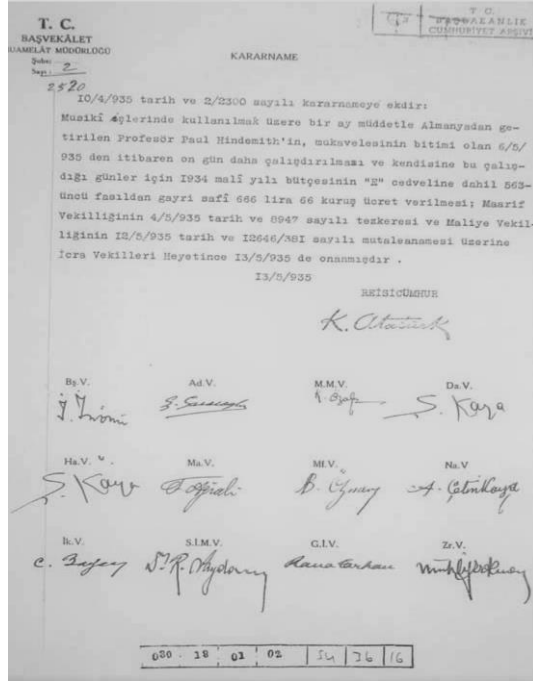 T. C.
BAŞVEKÂLET
MUAMELÂT MÜDÜRLÜĞÜ
Şube:
Sayı: 2
2520
T. C.
BAŞBAKANLIK
CUMHURİYET ARŞİVİ
KARARNAME
10/4/935 tarih ve 2/2300 sayılı kararnameye ekdir:
Musikî işlerinde kullanılmak üzere bir ay müddetle Almanyadan ge-
tirilen Profesör Paul Hindemith'in, mukavelesinin bitimi olan 6/5/
935 den itibaren on gün daha çalışdırılması ve kendisine bu çalış-
dığı günler için 1934 malî yılı bütçesinin "E" cedveline dahil 563-
üncü fasıldan gayri safî 666 lira 66 kuruş ücret verilmesi; Maarif
Vekilliğinin 4/5/935 tarih ve 8947 sayılı tezkeresi ve Maliye Vekil-
liğinin 12/5/935 tarih ve 12646/381 sayılı mutaleanamesi üzerine
İcra Vekilleri Heyetince 13/5/935 de onanmışdır .
13/5/935
REİSİCÜMHUR
K. Atatürk
Bş.V. Ad.V. M.M.V. Da.V.
İ. İnönü Ş. Kaya
Ha.V. Ma.V. Ml.V. Na.V
Ş. Kaya A. Çetinkaya
İk.V. S.İ.M.V. G.İ.V. Zr.V.
C. Bayar Dr. R. Saydam Rana Tarhan
030 18 01 02 54 36 16